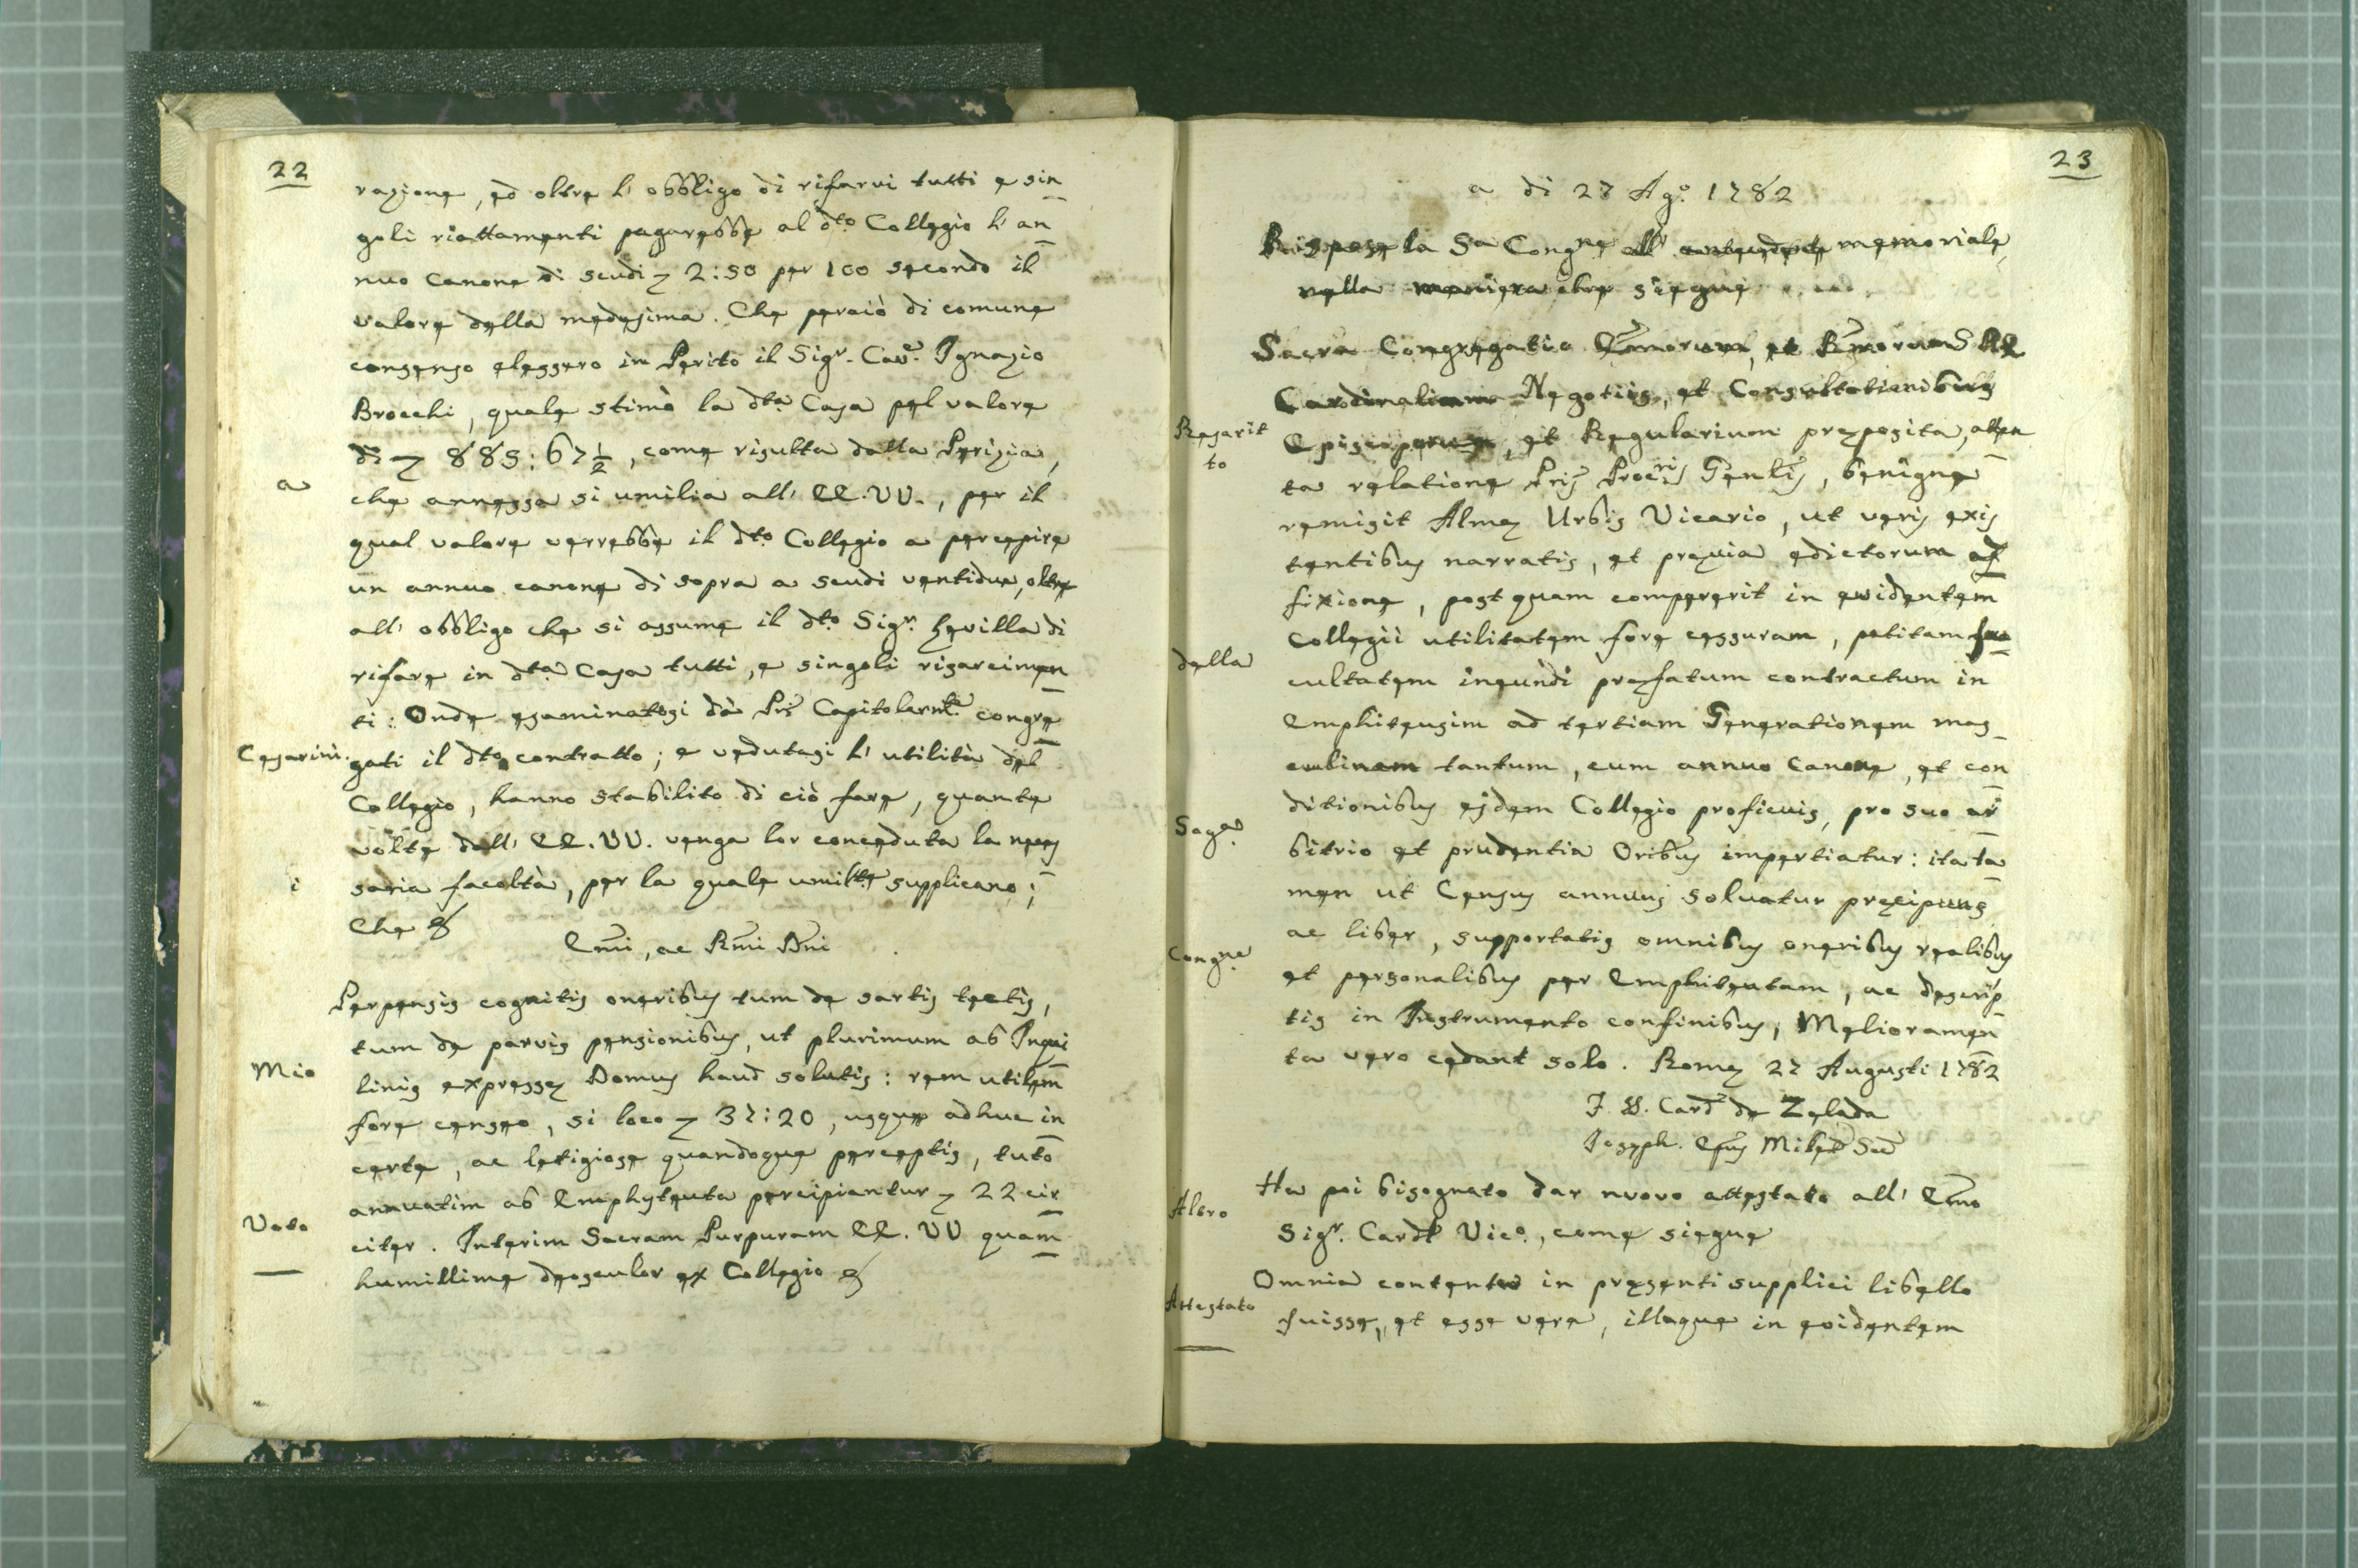 22
razione, ed oltre l' obbligo di rifarvi tutti e sin
goli riattamenti pagarebbe al dto Collegio l' an
nuo Canone di scudi 2:50 per 100 secondo il
valore della medesima. Che perciò di comune
consenso elessero in Perito il Sigr. Cave. Ignazio
Brocchi, quale stimò la dta Casa pel valore
di 885:67½, come risulta dalla Perizia,
a
che annessa si umilia all' EE.VV., per il
qual valore verrebbe il dto Collegio a percepire
un annuo canone di sopra a scudi ventidue, oltre
all' obbligo che si assume il dto Sigr. Sevilla di
rifare in dta Casa tutti, e singoli risarcimen
ti: Onde esaminatosi dà Pri Capitolarmte congre
Cesarini
gati il dto contratto; e vedutasi l' utilità del
Collegio, hanno stabilito di ciò fare, quante
volte dall' EE.VV. venga lor conceduta la neces
i
saria facoltà, per la quale umilte supplicano;
Che &
Emi, ac Rmi Dni
Perpensis cognitis oneribus tum de sartis tectis,
tum de parvis pensionibus, ut plurimum ab Inqui
Mio
linis expresse Domus haud solutis: rem utilem
fore censeo, si loco 37:20, usque adhuc in
certe, ac letigiose quandoque perceptis, tuto
annuatim ab Emphyteuta percipiantur 22 cir
Voto
citer. Interim Sacram Purpuram EE. VV quam
humillime deosculor ex Collegio &
23
a di 27 Ago. 1782
Rispose la Sa Congne all' antecedente memoriale,
nella maniera che siegue
Sacra Congregatio Emorum, et Rmorum S. R. E.
Cardinalium Negotiis, et Consultationibus
Rescrit
to
Episcoporum, et Regularium preposita, atten
ta relatione Pris Procris Genlis, benigne
remisit Alme Urbis Vicario, ut veris exis
tentibus narratis, et previa edictorum af
fixione, postquam compererit in evidentem
Collegii utilitatem fore cessuram, petitam fa
della
cultatem ineundi prefatum contractum in
Emphiteusim ad tertiam Generationem mas
culinam tantum, cum annuo Canone, et con
ditionibus ejdem Collegio proficuis, pro suo ar
Saga.
bitrio et prudentia Oribus impertiatur: ita ta
men ut Census annuus solvatur precipuus
ac liber, supportatis omnibus oneribus realibus
Congne.
et personalibus per Emphiteutam, ac descrip
tis in Instrumento confinibus; Melioramen
ta vero cedant solo. Rome 27 Augusti 1782
F. X. Card de Zelada
Joseph. Epus Milet Sec
Ha poi bisognato dar nuovo attestato all' Emo
Altro
Sigr. Cardl Vico., come siegue
Omnia contenta in presenti supplici libello
Attestato
fuisse, et esse vera, illaque in evidentem